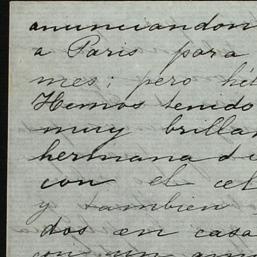 anunciandon
a Paris para
mes; pero hé
Hemos tenido
muy brillan
hermana de
con el cel
y tambien
dos en casa
con un ami